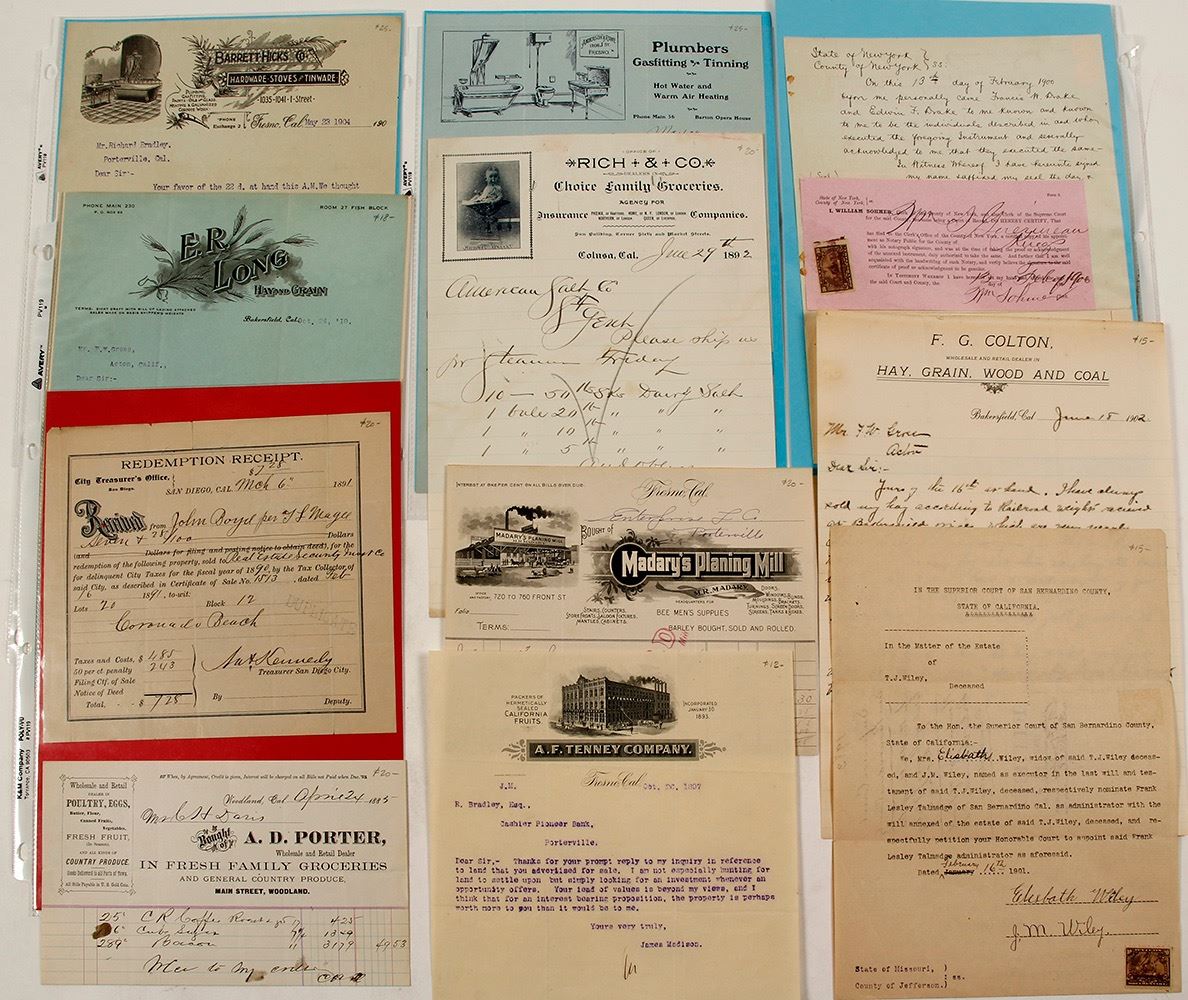 $25-
BARRETT-HICKS CO.
HARDWARE-STOVES AND TINWARE
PLUMBING
GASFITTING
PAINTS-OILS AND GLASS.
1035-1041-I-Street-
'PHONE
Exchange 2
Fresno, Cal. May 23 1904 190
Mr. Richard Bradley,
Porterville, Cal.
Dear Sir:-
Your favor of the 22 d. at hand this A.M. We thought
PHONE MAIN 230
P. O. BOX 65
ROOM 27 FISH BLOCK
$18-
E.R. LONG
HAY AND GRAIN
TERMS: SIGHT DRAFT WITH BILL OF LADING ATTACHED
SALES MADE ON BASIS SHIPPER'S WEIGHTS
Bakersfield, Cal. Oct. 24, '10.
Mr. F.W. Gross,
Acton, Calif.,
Dear Sir:-
$20-
REDEMPTION RECEIPT.
$7 28
City Treasurer's Office,
San Diego.
SAN DIEGO, CAL. Mch 6" 1891
Received from John Boyd per
Seven & 28/100 Dollars
(and Dollars for filing and posting notice to obtain deed), for the
redemption of the following property, sold to Real Estate Security Co
for delinquent City Taxes for the fiscal year of 1890 by the Tax Collector of
said City, as described in Certificate of Sale No. 1513, dated Feb
16 1891, to-wit:
Lots 20 Block 12
Coronado Beach
Taxes and Costs, $ 4 85
50 per ct. penalty 2 43
Filing Ctf. of Sale
Notice of Deed
Total, - - $ 7 28
Kennedy
Treasurer San Diego City.
By Deputy.
$20-
When, by Agreement, Credit is given, Interest will be charged on all Bills not Paid when Due.
Wholesale and Retail
DEALER IN
POULTRY, EGGS,
Butter, Flour,
Canned Fruits,
Vegetables,
FRESH FRUIT,
(In Season),
AND ALL KINDS OF
COUNTRY PRODUCE.
Goods Delivered to All Parts of Town.
All Bills Payable in U. S. Gold Coin.
Woodland, Cal April 24 1885
Mrs C H Davis
Bought of
A. D. PORTER,
Wholesale and Retail Dealer
IN FRESH FAMILY GROCERIES
AND GENERAL COUNTRY PRODUCE,
MAIN STREET, WOODLAND.
25 C R Coffee 17 4 25
Cube Sugar 13 49
289 Bacon 11 31 79 49 53
$25-
FRESNO.
Plumbers
Gasfitting and Tinning
Hot Water and
Warm Air Heating
Phone Main 56 Barton Opera House
$20-
OFFICE OF
RICH & CO.
DEALERS IN
Choice Family Groceries.
AGENCY FOR
Insurance Companies.
Sun Building, Corner Fifth and Market Streets.
Colusa, Cal. June 29th 1892
American Salt Co
SF
Gent
Please ship us
per steamer Friday
10 - 50 lb Sks Dairy Salt
1 bale 20 lb " " "
1 " 10 lb " " "
1 " 5 lb " " "
$20-
INTEREST AT ONE PER CENT ON ALL BILLS OVER DUE.
Fresno, Cal.
MADARY'S PLANING MILL
Enterprise L Co
Porterville
BOUGHT OF
Madary's Planing Mill
M.R. MADARY.
OFFICE
AND FACTORY. 720 TO 760 FRONT ST.
STAIRS, COUNTERS,
STORE FRONTS, SALOON FIXTURES,
MANTLES, CABINETS.
DOORS,
WINDOWS, BLINDS,
MOULDINGS, BRACKETS
TURNINGS, SCREEN DOORS,
SCREENS, TANKS & BOXES.
HEADQUARTERS FOR
BEE MEN'S SUPPLIES
BARLEY BOUGHT, SOLD AND ROLLED.
Folio
TERMS:
$12-
PACKERS OF
HERMETICALLY
SEALED
CALIFORNIA
FRUITS.
INCORPORATED
JANUARY 30
1893.
A.F. TENNEY COMPANY.
Fresno, Cal. Oct. 20, 1897
J.M.
R. Bradley, Esq.,
Cashier Pioneer Bank,
Porterville.
Dear Sir,- Thanks for your prompt reply to my inquiry in reference
to land that you advertised for sale. I am not especially hunting for
land to settle upon but simply looking for an investment whenever an
opportunity offers. Your idea of values is beyond my views, and I
think that for an interest bearing proposition, the property is perhaps
worth more to you than it would be to me.
Yours very truly,
James Madison.
State of New York }
County of New York } SS:
On this 13th day of February 1900
before me personally came Francis W. Drake
and Edwin F. Drake to me known and known
to me to be the individuals described in and who
executed the foregoing Instrument and severally
acknowledged to me that they executed the same-
In Witness Whereof I have hereunto signed
my name & affixed my seal the day &
State of New York,
County of New York, } ss.
I, WILLIAM SOHMER,
$15-
F. G. COLTON,
WHOLESALE AND RETAIL DEALER IN
HAY, GRAIN, WOOD AND COAL
Bakersfield, Cal June 18 1902
Mr. F W Gross
Acton
Dear Sir:-
Yours of the 16th at hand. I have always
sold my hay according to Railroad weight received
$15-
IN THE SUPERIOR COURT OF SAN BERNARDINO COUNTY,
STATE OF CALIFORNIA.
In the Matter of the Estate
of
T.J.Wiley,
Deceased
To the Hon. the Superior Court of San Bernardino County,
State of California:-
We, Mrs. Elisbath Wiley, widow of said T.J.Wiley deceas-
ed, and J.M. Wiley, named as executor in the last will and tes-
tament of said T.J.Wiley, deceased, respectively nominate Frank
Lesley Talmadge of San Bernardino Cal. as administrator with the
will annexed of the estate of said T.J.Wiley, deceased, and re-
spectfully petition your Honorable Court to appoint said Frank
Lesley Talmadge administrator as aforesaid.
Dated February January 16th 1901.
Elisbath Wiley
J. M. Wiley.
State of Missouri, )
) ss.
County of Jefferson.)